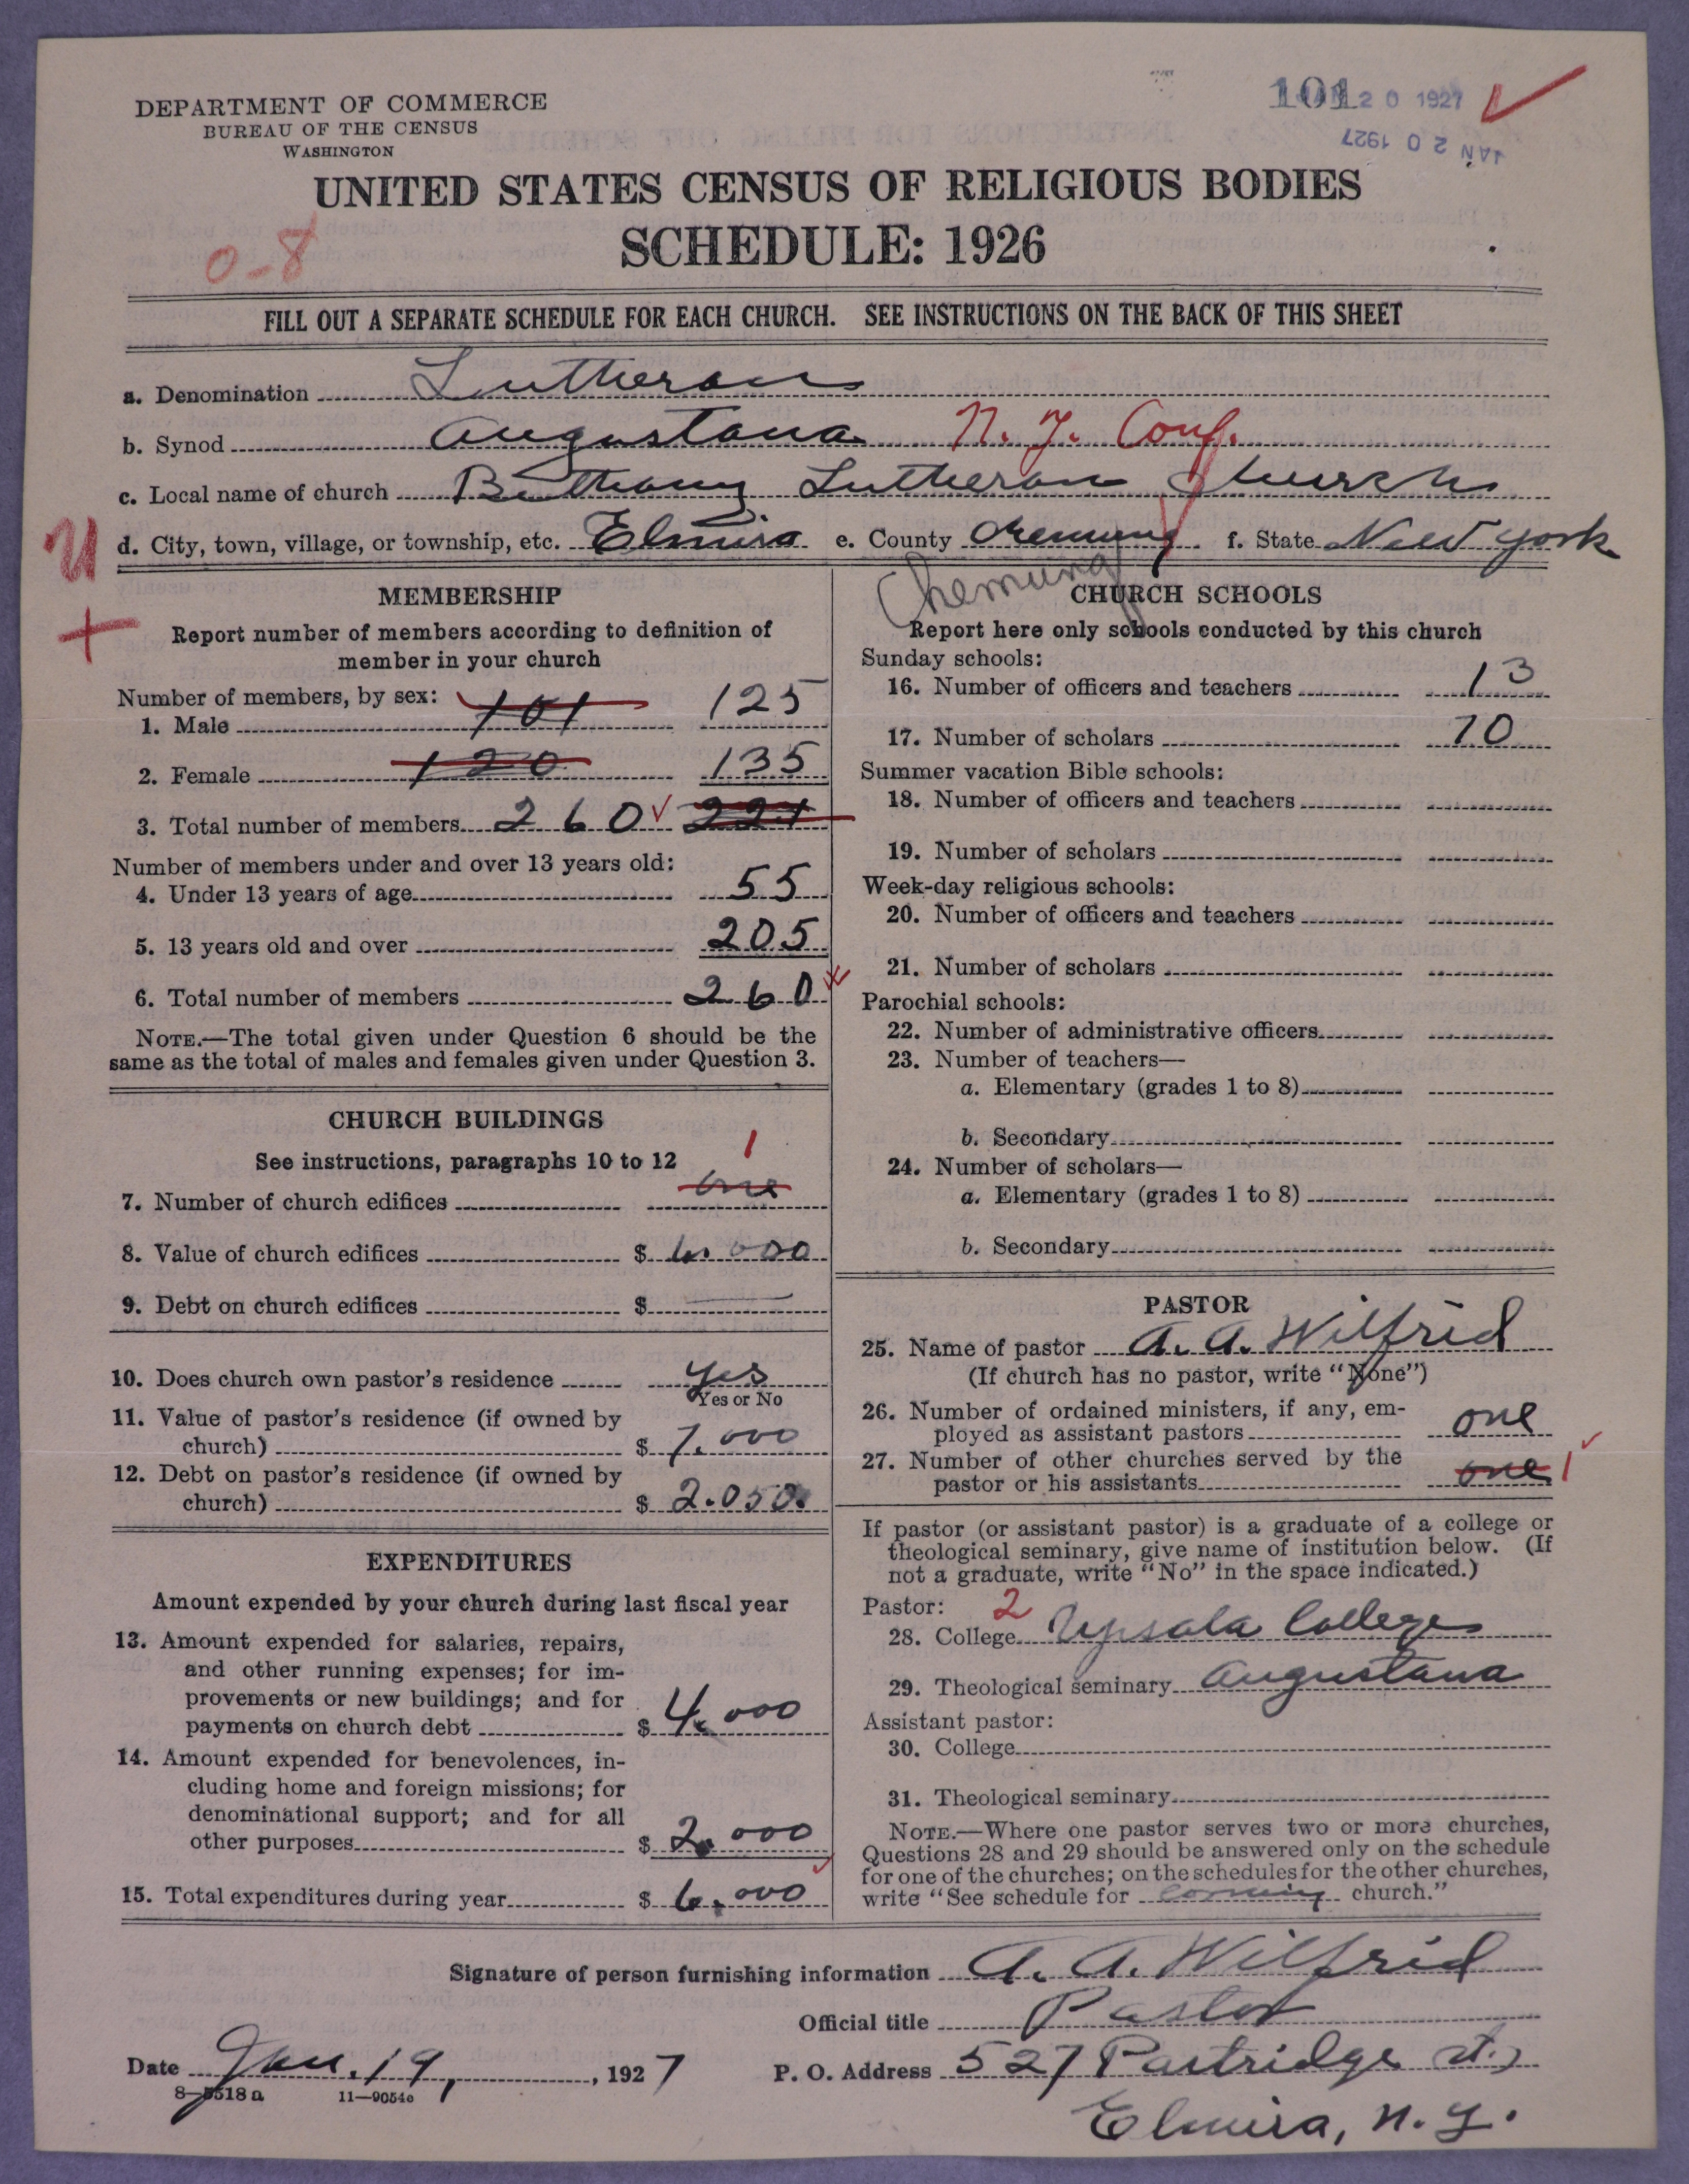 DEPARTMENT OF COMMERCE
BUREAU OF THE CENSUS
WASHINGTON
101 20 1927
JAN 20 1927
UNITED STATES CENSUS OF RELIGIOUS BODIES
SCHEDULE: 1926
0-8
FILL OUT A SEPARATE SCHEDULE FOR EACH CHURCH. SEE INSTRUCTIONS ON THE BACK OF THIS SHEET
a. Denomination Lutheran
b. Synod Augustana N. Y. Conf.
c. Local name of church Bethany Lutheran Church
U d. City, town, village, or township, etc. Elmira e. County Chemung f. State New York
Chemung
MEMBERSHIP
Report number of members according to definition of
member in your church
Number of members, by sex:
1. Male 101 125
2. Female 120 135
3. Total number of members 260 221
Number of members under and over 13 years old:
4. Under 13 years of age 55
5. 13 years old and over 205
6. Total number of members 260
NOTE.—The total given under Question 6 should be the
same as the total of males and females given under Question 3.
CHURCH BUILDINGS
See instructions, paragraphs 10 to 12
1
7. Number of church edifices one
8. Value of church edifices $ 6.000
9. Debt on church edifices $ —
10. Does church own pastor's residence yes
Yes or No
11. Value of pastor's residence (if owned by
church) $ 7.000
12. Debt on pastor's residence (if owned by
church) $ 2.050.
EXPENDITURES
Amount expended by your church during last fiscal year
13. Amount expended for salaries, repairs,
and other running expenses; for im-
provements or new buildings; and for
payments on church debt $ 4.000
14. Amount expended for benevolences, in-
cluding home and foreign missions; for
denominational support; and for all
other purposes $ 2.000
15. Total expenditures during year $ 6.000
CHURCH SCHOOLS
Report here only schools conducted by this church
Sunday schools:
16. Number of officers and teachers 13
17. Number of scholars 70
Summer vacation Bible schools:
18. Number of officers and teachers
19. Number of scholars
Week-day religious schools:
20. Number of officers and teachers
21. Number of scholars
Parochial schools:
22. Number of administrative officers
23. Number of teachers—
a. Elementary (grades 1 to 8)
b. Secondary
24. Number of scholars—
a. Elementary (grades 1 to 8)
b. Secondary
PASTOR
25. Name of pastor A. A. Wilfrid
(If church has no pastor, write "None")
26. Number of ordained ministers, if any, em-
ployed as assistant pastors one
27. Number of other churches served by the
pastor or his assistants one 1
If pastor (or assistant pastor) is a graduate of a college or
theological seminary, give name of institution below. (If
not a graduate, write "No" in the space indicated.)
Pastor: 2
28. College Upsala College
29. Theological seminary Augustana
Assistant pastor:
30. College
31. Theological seminary
NOTE.—Where one pastor serves two or more churches,
Questions 28 and 29 should be answered only on the schedule
for one of the churches; on the schedules for the other churches,
write "See schedule for Corning church."
Signature of person furnishing information A. A. Wilfrid
Official title Pastor
Date Jan. 19, 1927 P. O. Address 527 Partridge st.,
8-5518a 11-9054c
Elmira, N. Y.